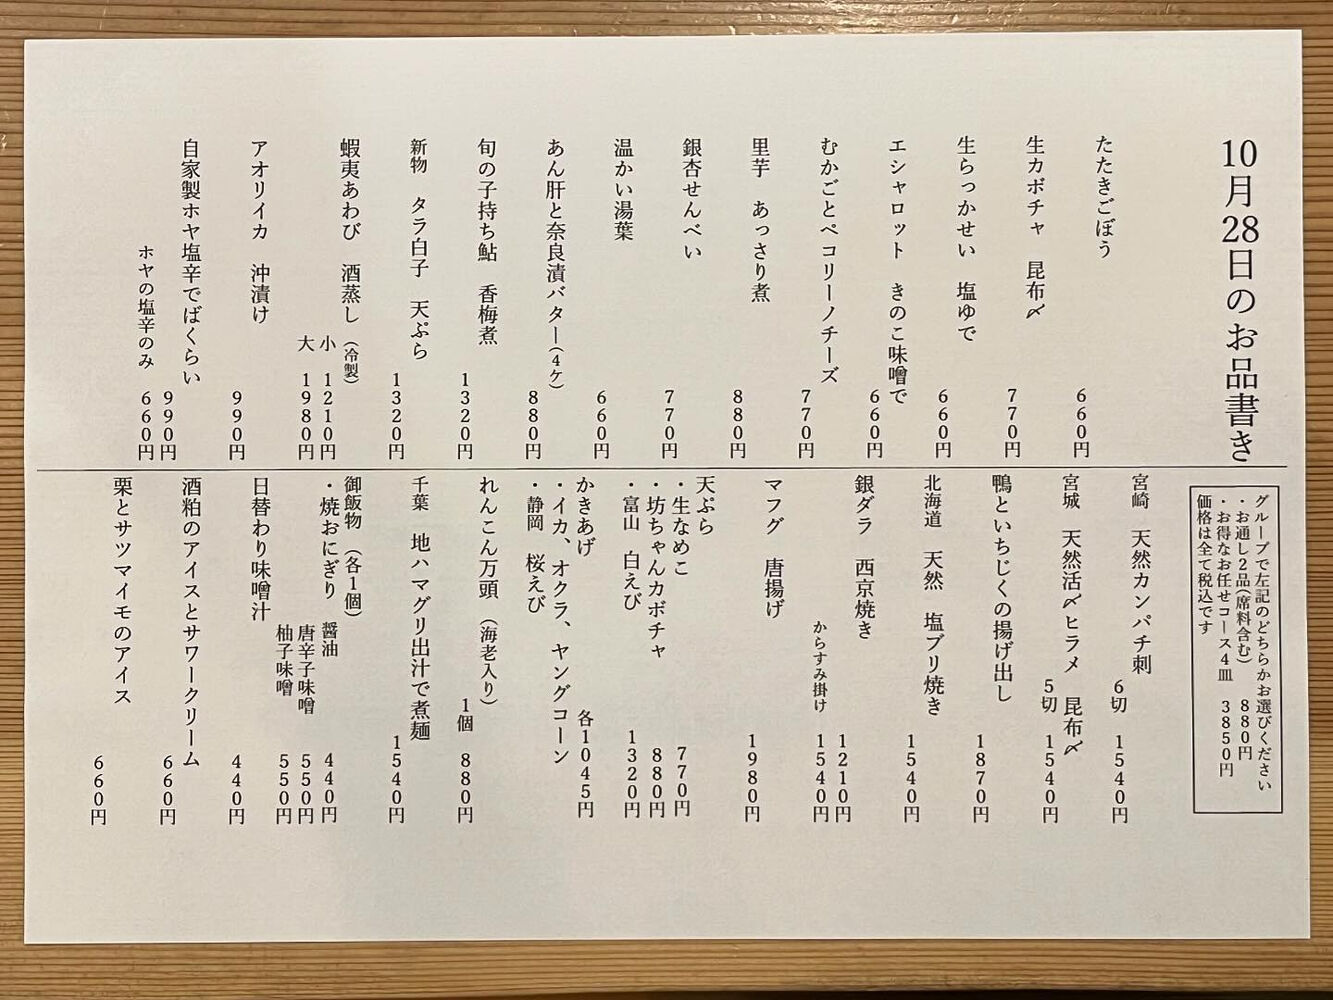 10月28日のお品書き
たたきごぼう 660円
生カボチャ 昆布〆 770円
生らっかせい 塩ゆで 660円
エシャロット きのこ味噌で 660円
むかごとペコリーノチーズ 770円
里芋 あっさり煮 880円
銀杏せんべい 770円
温かい湯葉 660円
あん肝と奈良漬バター(4ケ) 880円
旬の子持ち鮎 香梅煮 1320円
新物 タラ白子 天ぷら 1320円
蝦夷あわび 酒蒸し (冷製)
小 1210円
大 1980円
アオリイカ 沖漬け 990円
自家製ホヤ塩辛でばくらい 990円
ホヤの塩辛のみ 660円
グループで左記のどちらかお選びください
・お通し2品(席料含む) 880円
・お得なお任せコース4皿 3850円
価格は全て税込です
宮崎 天然カンパチ刺
6切 1540円
宮城 天然活〆ヒラメ 昆布〆
5切 1540円
鴨といちじくの揚げ出し 1870円
北海道 天然 塩ブリ焼き 1540円
銀ダラ 西京焼き 1210円
からすみ掛け 1540円
マフグ 唐揚げ 1980円
天ぷら
・生なめこ 770円
・坊ちゃんカボチャ 880円
・富山 白えび 1320円
かきあげ 各1045円
・イカ、オクラ、ヤングコーン
・静岡 桜えび
れんこん万頭 (海老入り)
1個 880円
千葉 地ハマグリ出汁で煮麺 1540円
御飯物 (各1個)
・焼おにぎり 醤油 440円
唐辛子味噌 550円
柚子味噌 550円
日替わり味噌汁 440円
酒粕のアイスとサワークリーム 660円
栗とサツマイモのアイス 660円